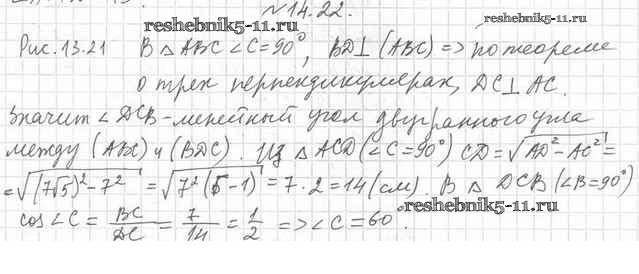 №14.22.
reshebnik5-11.ru
reshebnik5-11.ru
Рис. 13.21 В △ ABC ∠C=90°, BD⊥(ABC) => по теореме
о трех перпендикулярах, DC⊥AC.
Значит ∠DCB-линейный угол двугранного угла
между (ABC) и (BDC). Из △ ACD(∠C=90°) CD=√AD²-AC²=
=√(7√5)²-7²=√7²(5-1)=7·2=14(см). В △ DCB(∠B=90°)
reshebnik5-11.ru
cos∠C=BC/DC=7/14=1/2 =>∠C=60°.